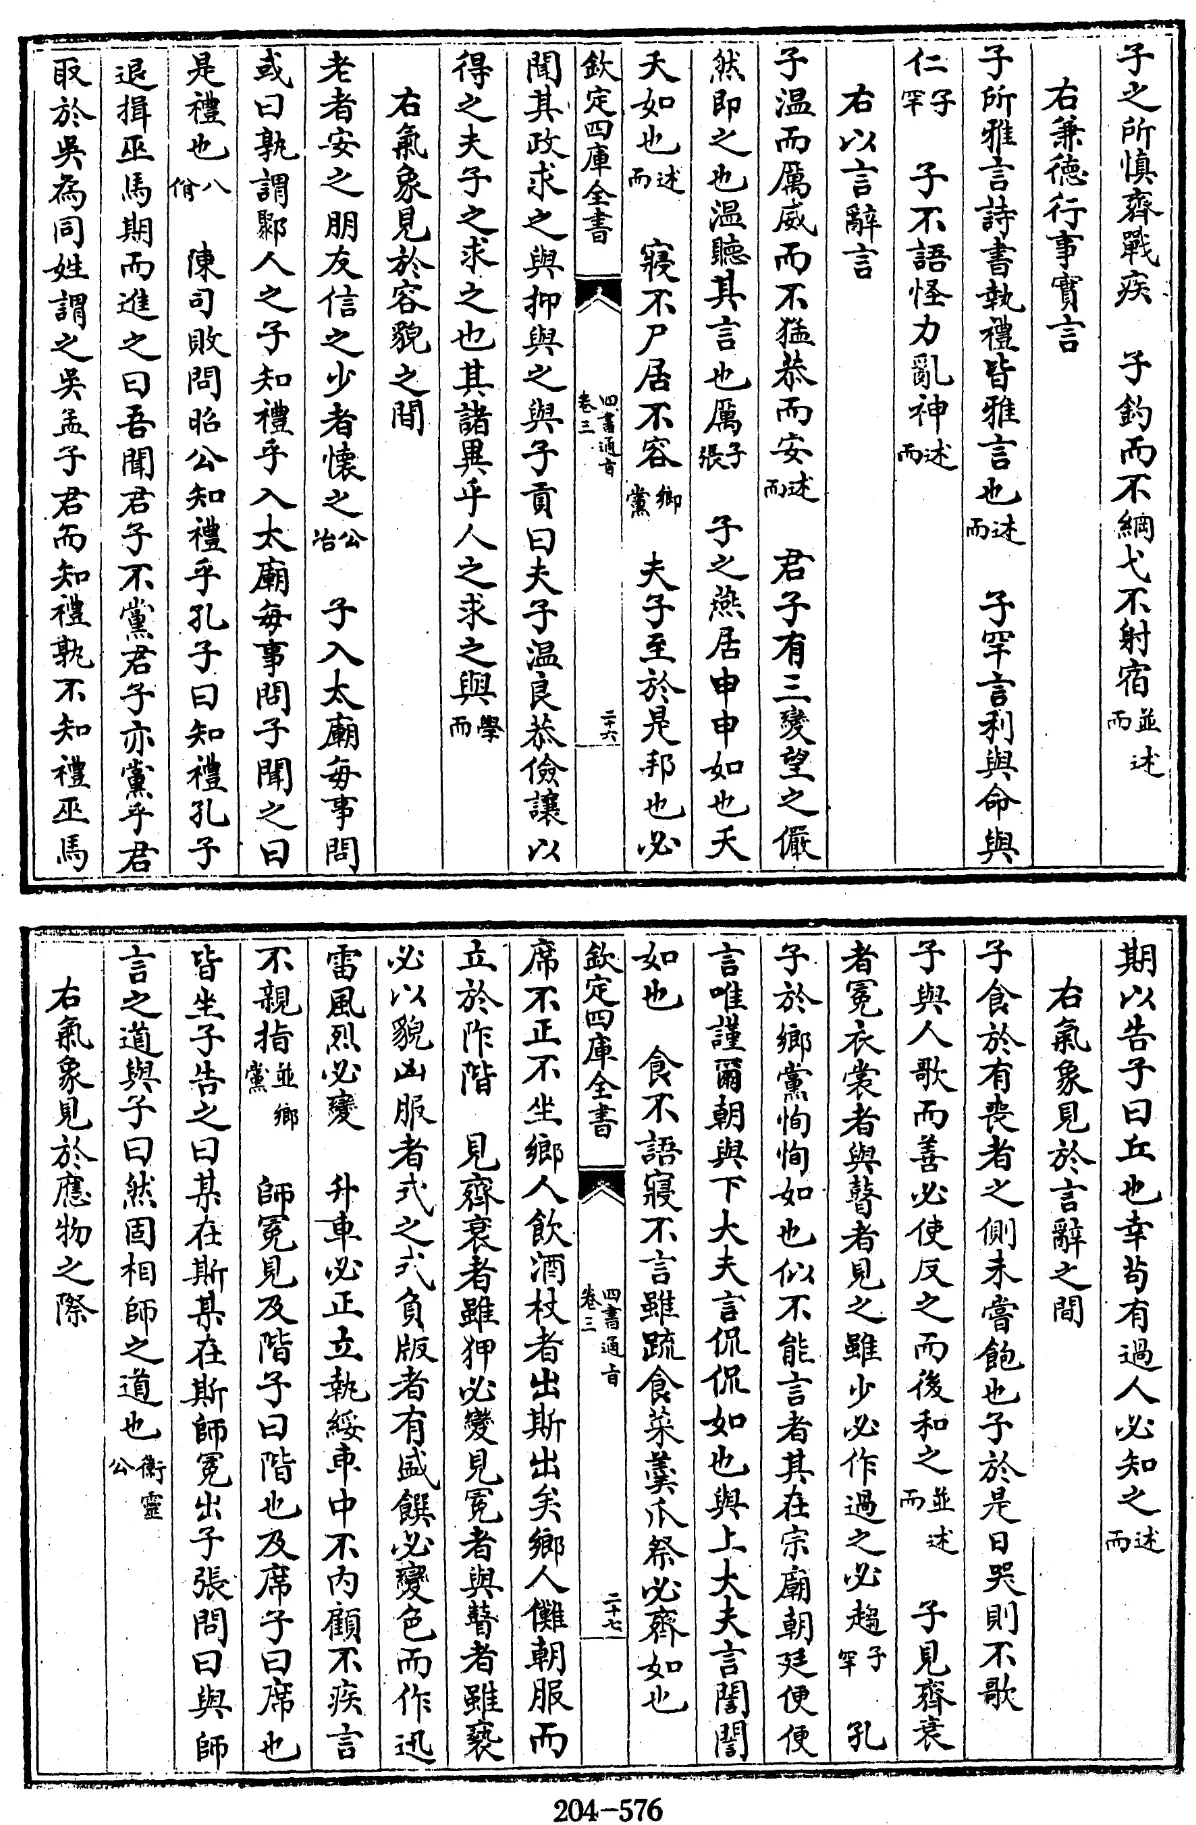 子之所慎齊戰疾　子釣而不綱弋不射宿並述而
右兼德行事實言
子所雅言詩書執禮皆雅言也述而　子罕言利與命與
仁子罕　子不語怪力亂神述而
右以言辭言
子温而厲威而不猛恭而安述而　君子有三變望之儼
然即之也温聽其言也厲子張　子之燕居申申如也夭
夭如也述而　寢不尸居不容鄉黨　夫子至於是邦也必
欽定四庫全書　四書通旨卷三　二十六
聞其政求之與抑與之與子貢曰夫子温良恭儉讓以
得之夫子之求之也其諸異乎人之求之與學而
右氣象見於容貌之間
老者安之朋友信之少者懷之公冶　子入太廟每事問
或曰孰謂鄹人之子知禮乎入太廟每事問子聞之曰
是禮也八佾　陳司敗問昭公知禮乎孔子曰知禮孔子
退揖巫馬期而進之曰吾聞君子不黨君子亦黨乎君
取於吳為同姓謂之吳孟子君而知禮孰不知禮巫馬
期以告子曰丘也幸茍有過人必知之述而
右氣象見於言辭之間
子食於有喪者之側未嘗飽也子於是日哭則不歌
子與人歌而善必使反之而後和之並述而　子見齊衰
者冕衣裳者與瞽者見之雖少必作過之必趨子罕　孔
子於鄉黨恂恂如也似不能言者其在宗廟朝廷便便
言唯謹爾朝與下大夫言侃侃如也與上大夫言誾誾
如也　食不語寢不言雖疏食菜羹瓜祭必齊如也
欽定四庫全書　四書通旨卷三　二十七
席不正不坐鄉人飲酒杖者出斯出矣鄉人儺朝服而
立於阼階　見齊衰者雖狎必變見冕者與瞽者雖褻
必以貌凶服者式之式負版者有盛饌必變色而作迅
雷風烈必變　升車必正立執綏車中不内顧不疾言
不親指並鄉黨　師冕見及階子曰階也及席子曰席也
皆坐子告之曰某在斯某在斯師冕出子張問曰與師
言之道與子曰然固相師之道也衛靈公
右氣象見於應物之際
204-576